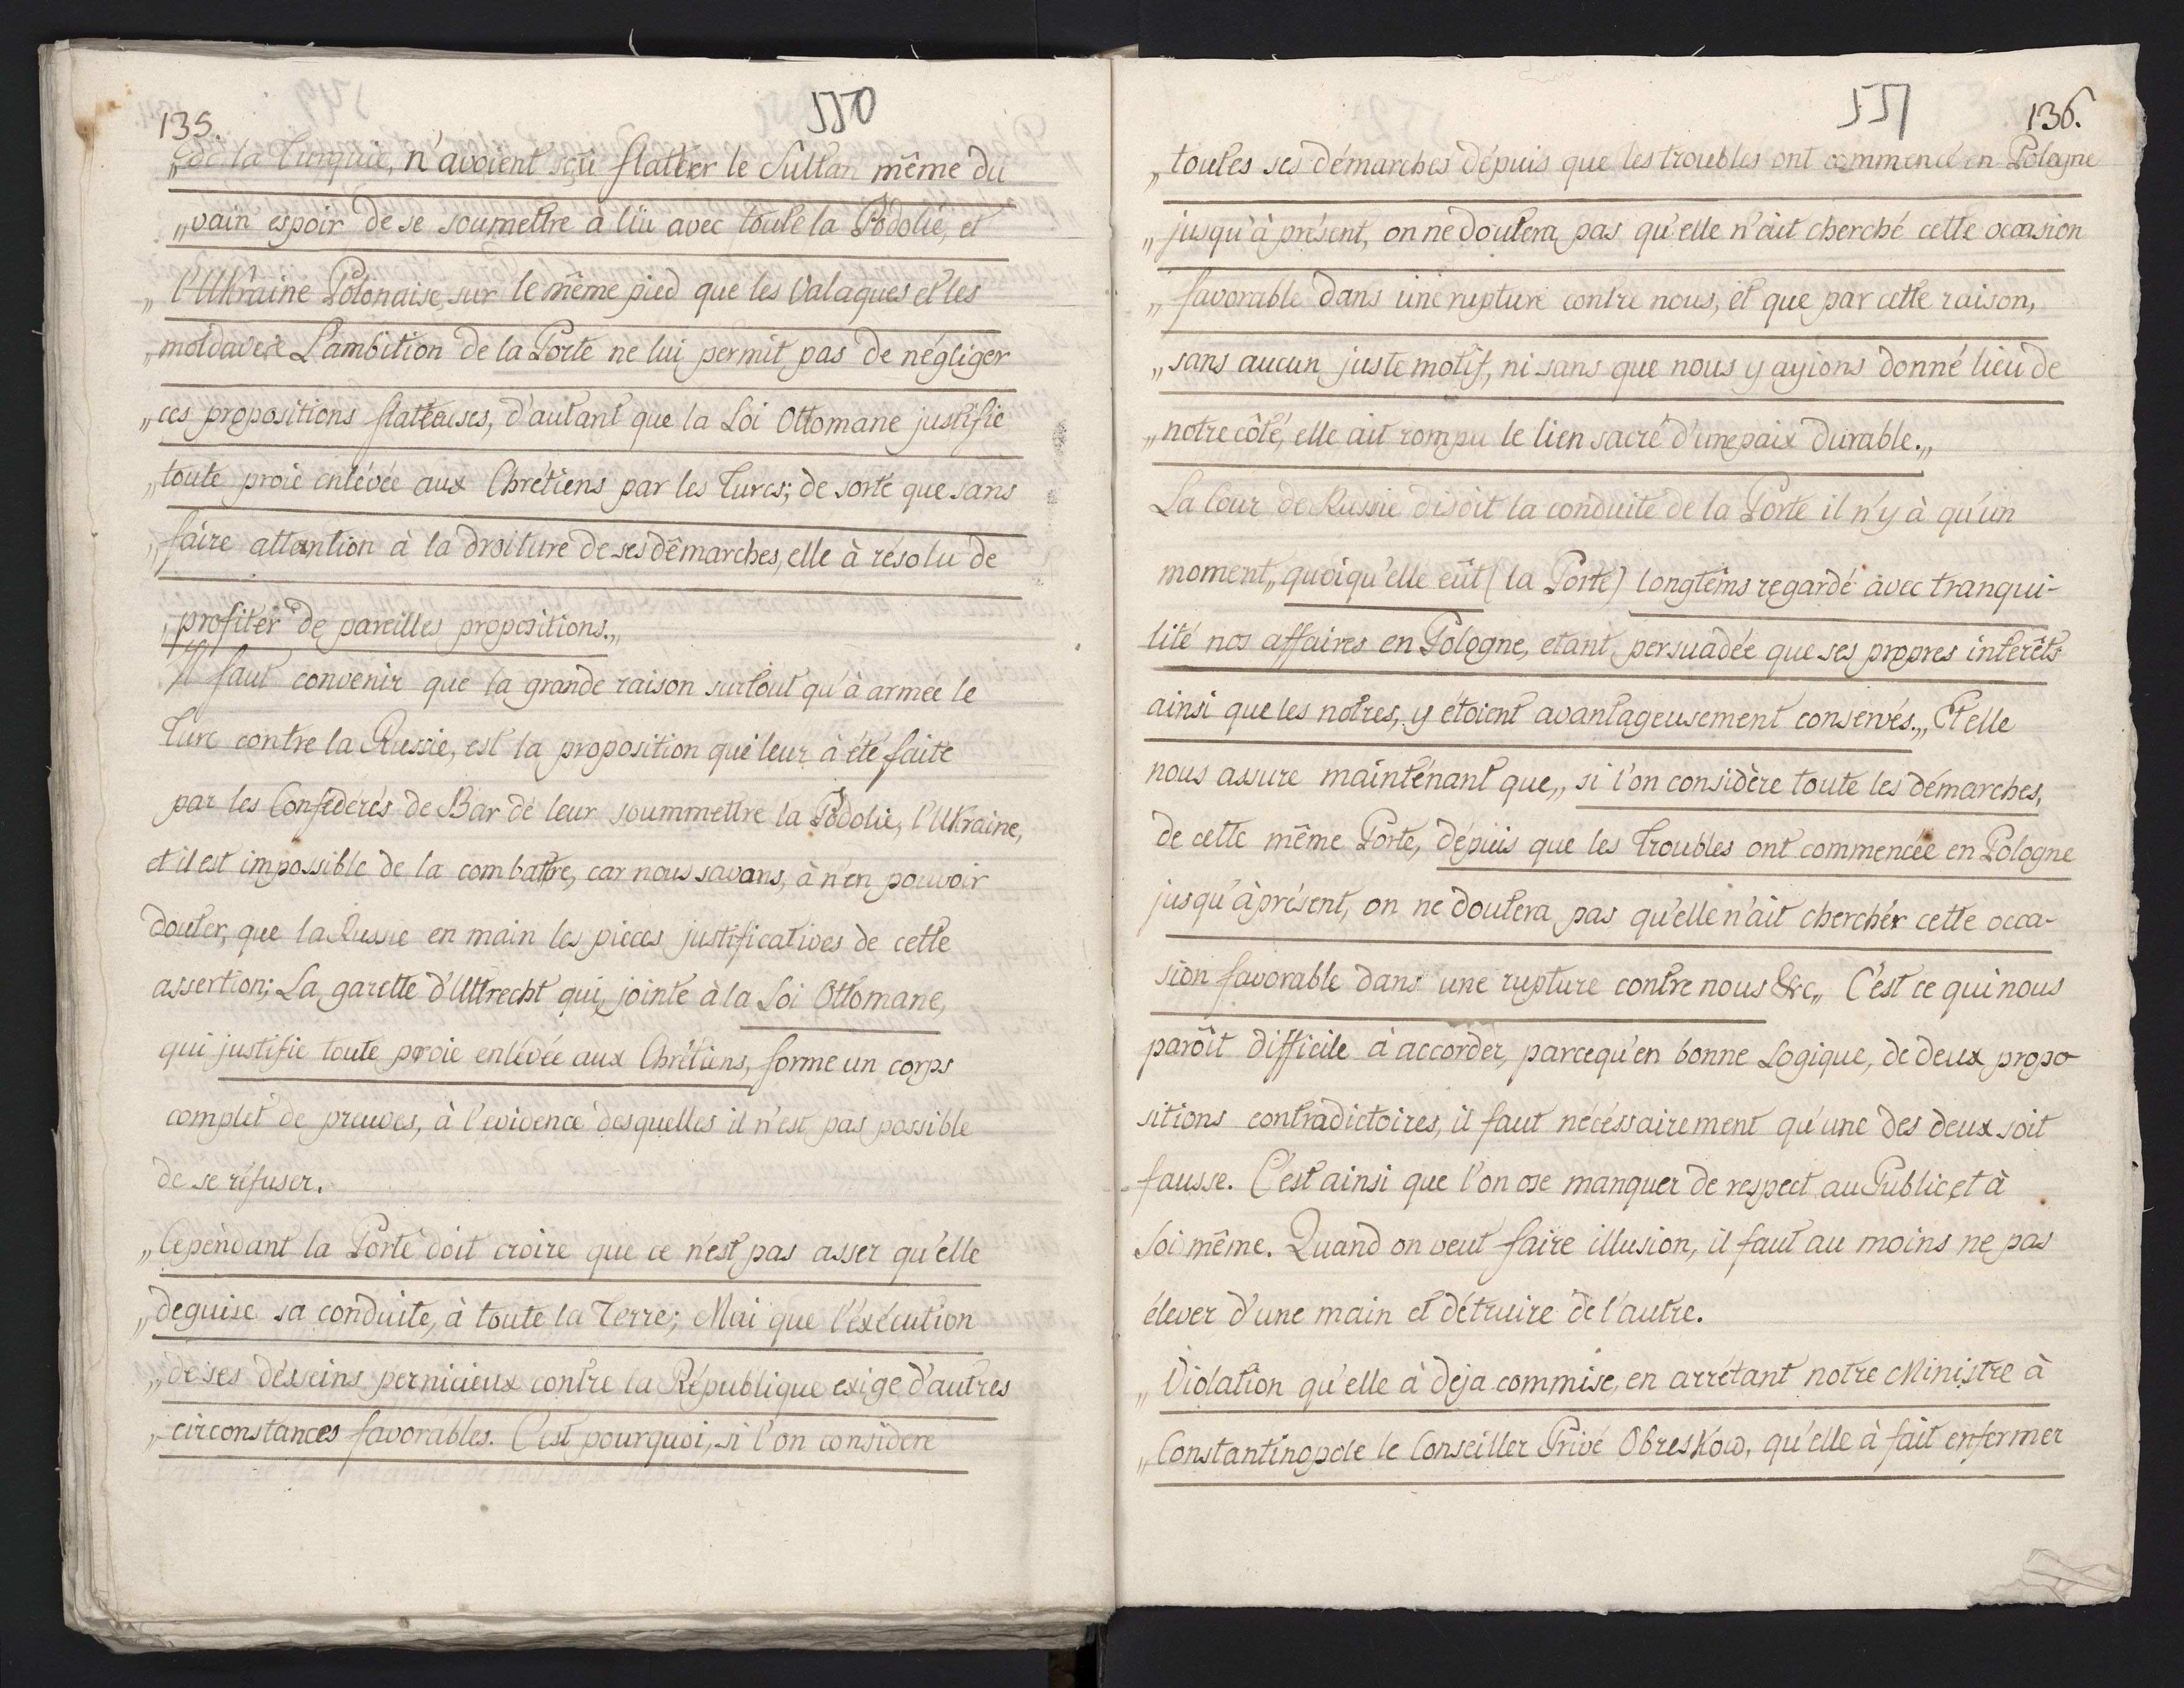 135.
550
„de la Turquie, n'avoient sçû flatter le Sultan même du
„vain espoir de se soumettre à lui avec toute la Podolie, et
„l'Ukraine Polonaise, sur le même pied que les Valaques et les
„moldaves. L'ambition de la Porte ne lui permit pas de négliger
„ces propositions flatteuses, d'autant que la Loi Ottomane justifie
„toute proie enlévée aux Chrétiens par les Turcs; de sorte que sans
„faire attention à la droiture de ses démarches, elle à résolu de
„profiter de pareilles propositions.„
Il faut convenir que la grande raison surtout qu'à armée le
Turc contre la Russie, est la proposition qui leur à été faite
par les Confédérés de Bar de leur soummettre la Podolie, l'Ukraine,
et il est impossible de la combattre, car nous savons, à n'en pouvoir
douter, que la Russie en main les pieces justificatives de cette
assertion; La gazette d'Uttrecht qui, jointe à la Loi Ottomane,
qui justifie toute proie enlévée aux Chrétiens, forme un corps
complet de preuves, à l'evidence desquelles il n'est pas possible
de se réfuser.
„Cependant la Porte doit croire que ce n'est pas assez qu'elle
„deguise sa conduite, à toute la Terre; Mai que l'éxécution
„de ses desseins pernicieux contre la République exige d'autres
„circonstances favorables. C'est pourquoi, si l'on considere
551
136.
„toutes ses démarches dépuis que les troubles ont commencé en Pologne
„jusqu'à présent, on ne doutera pas qu'elle n'ait cherché cette occasion
„favorable dans une rupture contre nous, et que par cette raison,
„sans aucun juste motif, ni sans que nous y ayions donné lieu de
„notre côté, elle ait rompu le lien sacré d'une paix durable.„
La Cour de Russie disoit la conduite de la Porte il n'y à qu'un
moment„ quoiqu'elle eût (la Porte) longtêms regardé avec tranqui-
lité nos affaires en Pologne, etant persuadée que ses propres interêts
ainsi que les notres, y étoient avantageusement conservés.„ Et elle
nous assure maintenant que„ si l'on considère toute les démarches,
de cette même Porte, dépuis que les Troubles ont commencée en Pologne
jusqu'àprésent, on ne doutera pas qu'elle n'ait cherchér cette occa-
sion favorable dans une rupture contre nous &c„ C'est ce qui nous
paroît difficile à accorder, parcequ'en bonne Logique, de deux propo-
sitions contradictoires, il faut nécéssairement qu'une des deux soit
fausse. C'est ainsi que l'on ose manquer de respect au Public, et à
soi même. Quand on veut faire illusion, il faut au moins ne pas
élever d'une main et détruire de l'autre.
„Violation qu'elle à deja commise, en arrétant notre Ministre à
„Constantinopole le Conseiller Privé Obreskow, qu'elle à fait enfermer